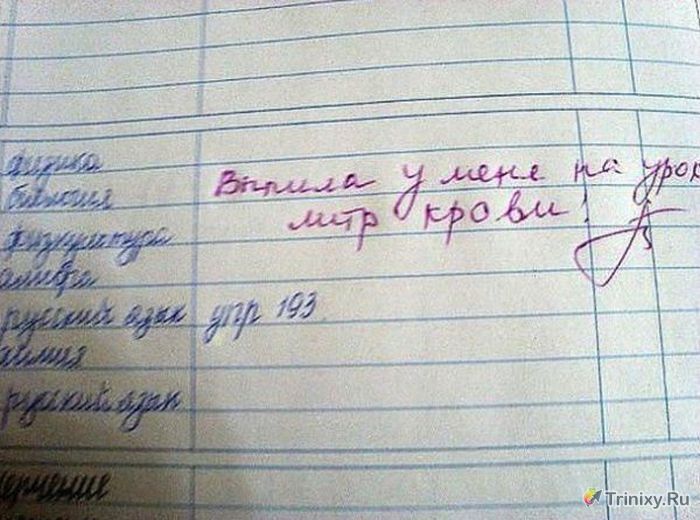 физика
биология
Выпила у меня на урок
литр крови!
физкультура
алгебра
русский язык упр 193
химия
русский язык
черчение
Trinixy.Ru